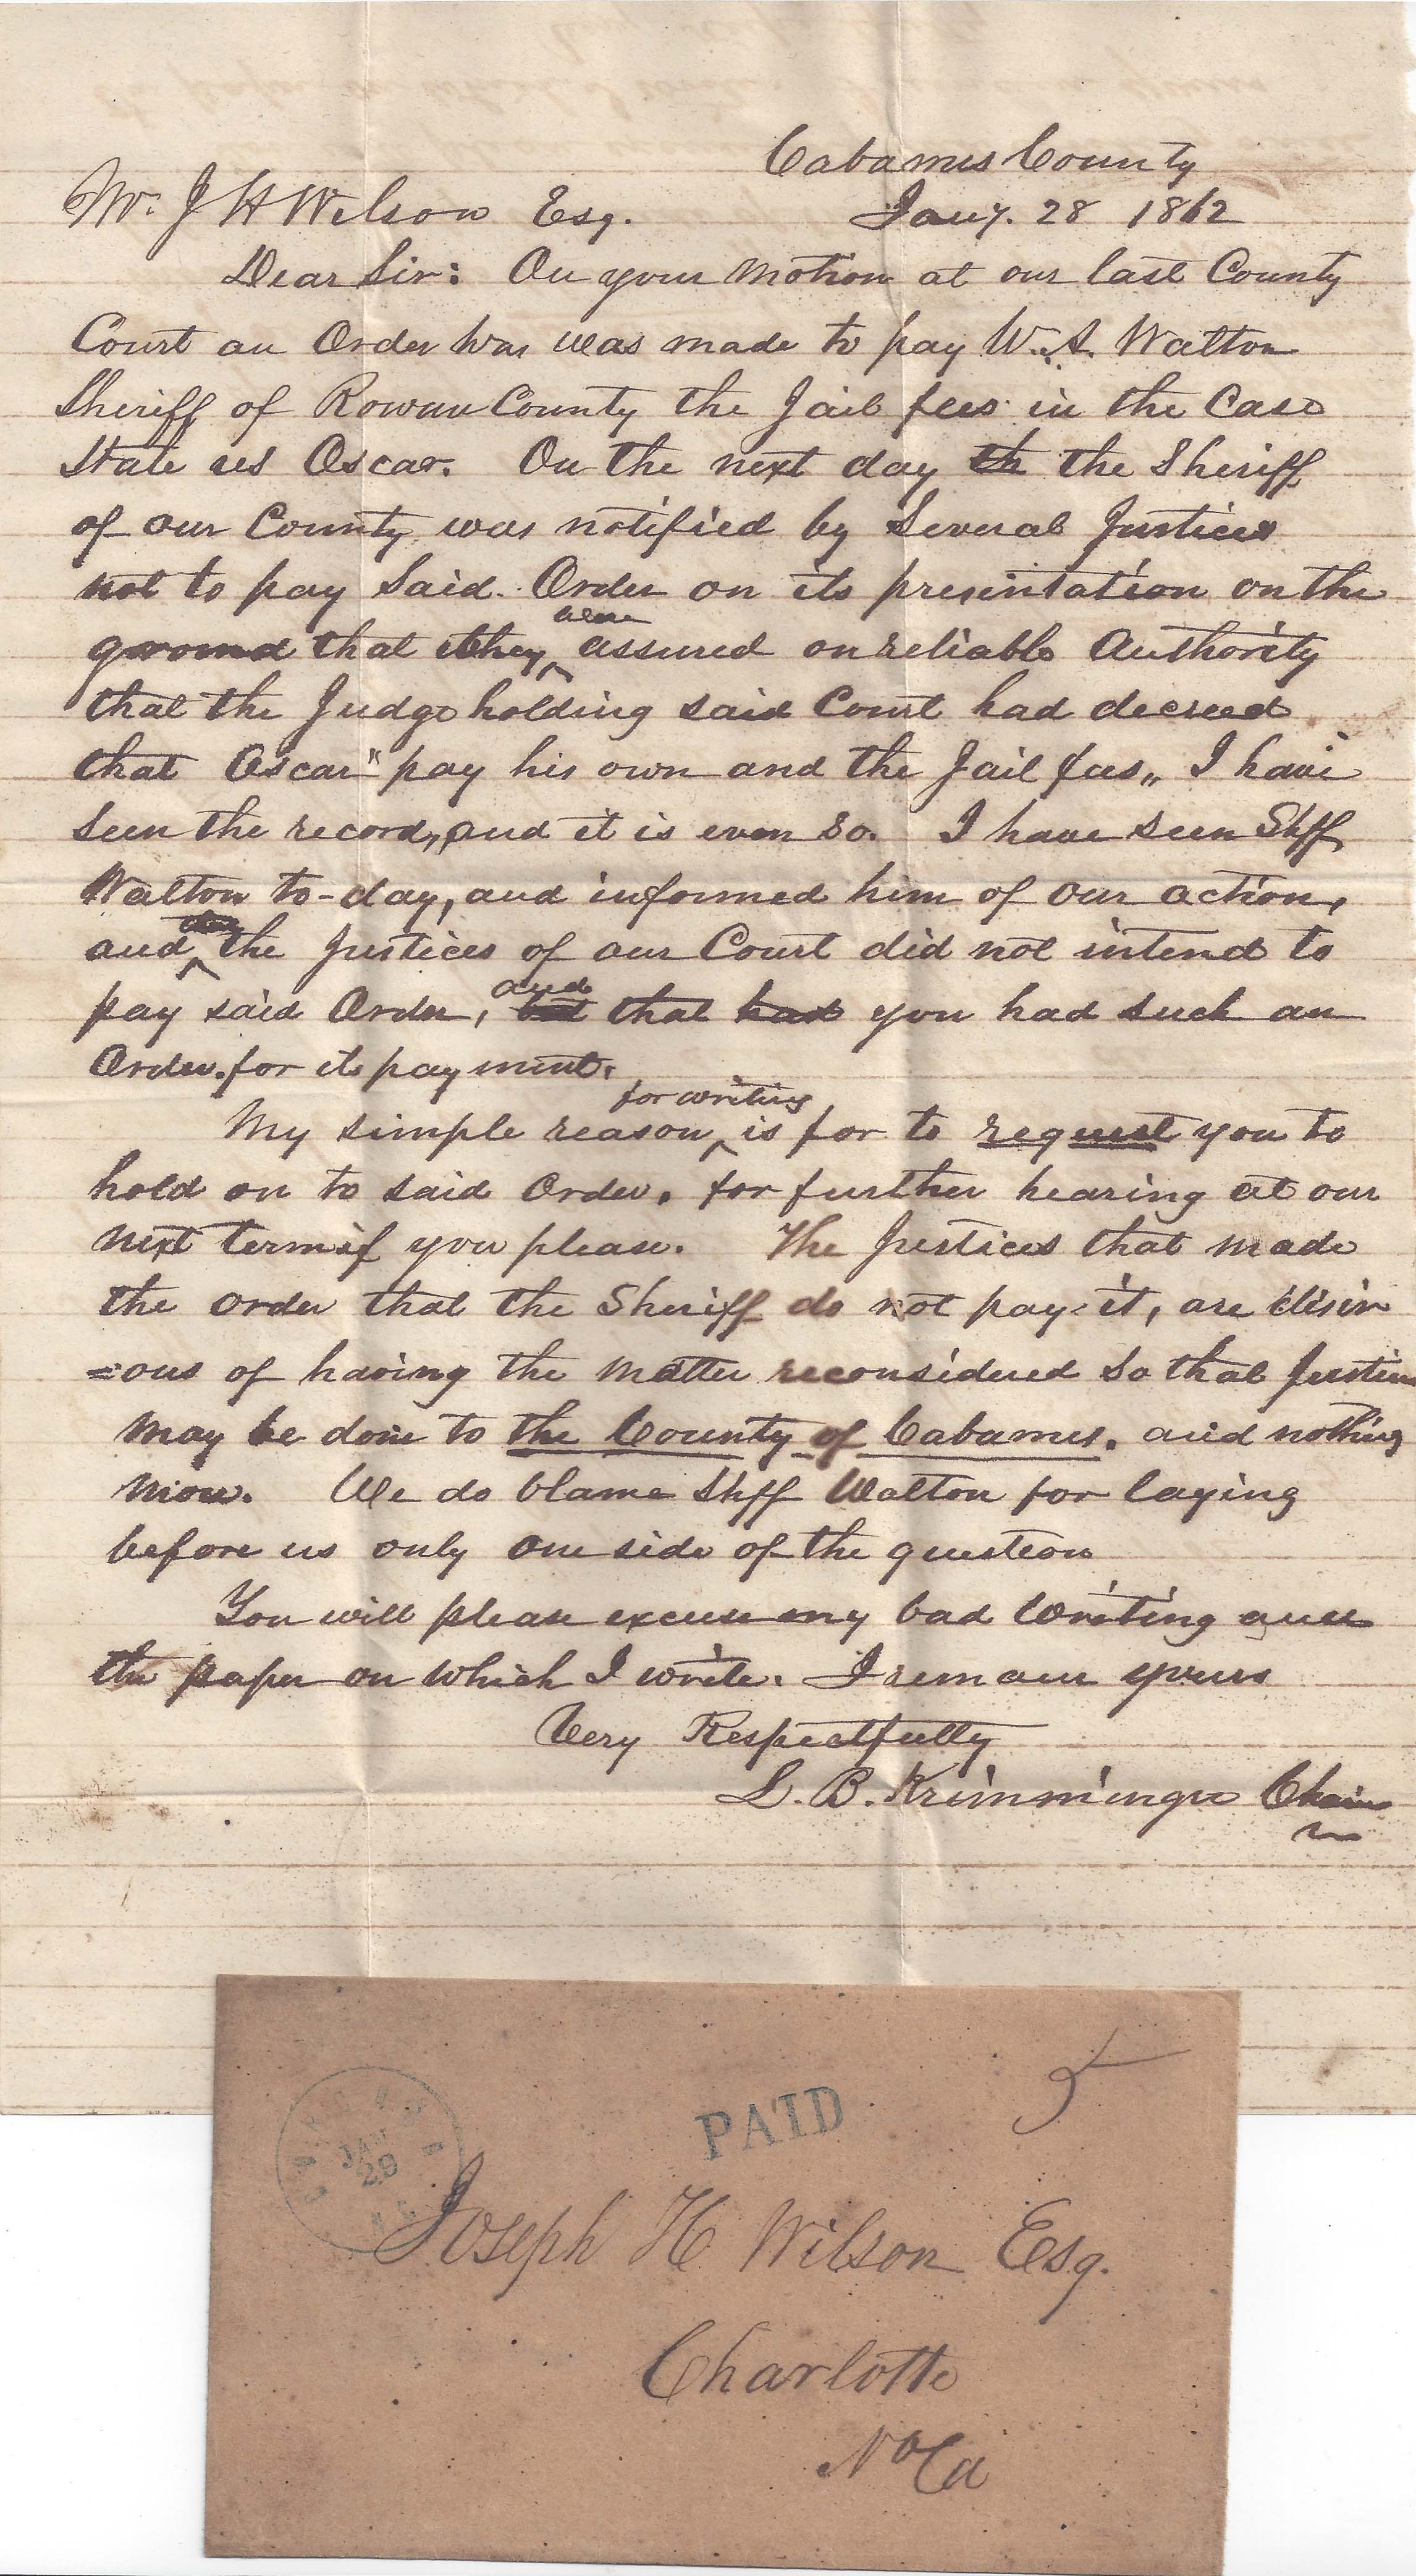 Cabarrus County
Mr. J H Wilson Esq. Jany. 28 1862
Dear Sir: On your motion at our last County
Court an Order was made to pay W. A. Walton
Sheriff of Rowan County the Jail fees in the Case
State vs Oscar. On the next day th the Sheriff
of our County was notified by Several Justices
not to pay said Order on its presentation on the
ground that they were assured on reliable Authority
that the Judge holding said Court had decreed
that Oscar "pay his own and the Jail fees„ I have
seen the record, and it is even so. I have seen Shff
Walton to-day, and informed him of our action,
and the Justices of our Court did not intend to
pay said Order, and that you had such an
Order for its payment.
My simple reason for writing is for to request you to
hold on to said Order, for further hearing at our
next term if you please. The Justices that made
the order that the Sheriff do not pay it, are desir
=ous of having the matter reconsidered so that Justice
may be done to the County of Cabarrus. and nothing
more. We do blame Shff Walton for laying
before us only one side of the question
You will please excuse my bad writing and
the paper on which I write. I remain yours
Very Respectfully
L. B. Krimminger Chair
m
PAID 5
JAN
29
Joseph H Wilson Esq.
Charlotte
No Ca